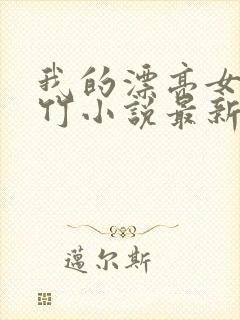 我的漂亮女
竹小说最新
邁尔斯